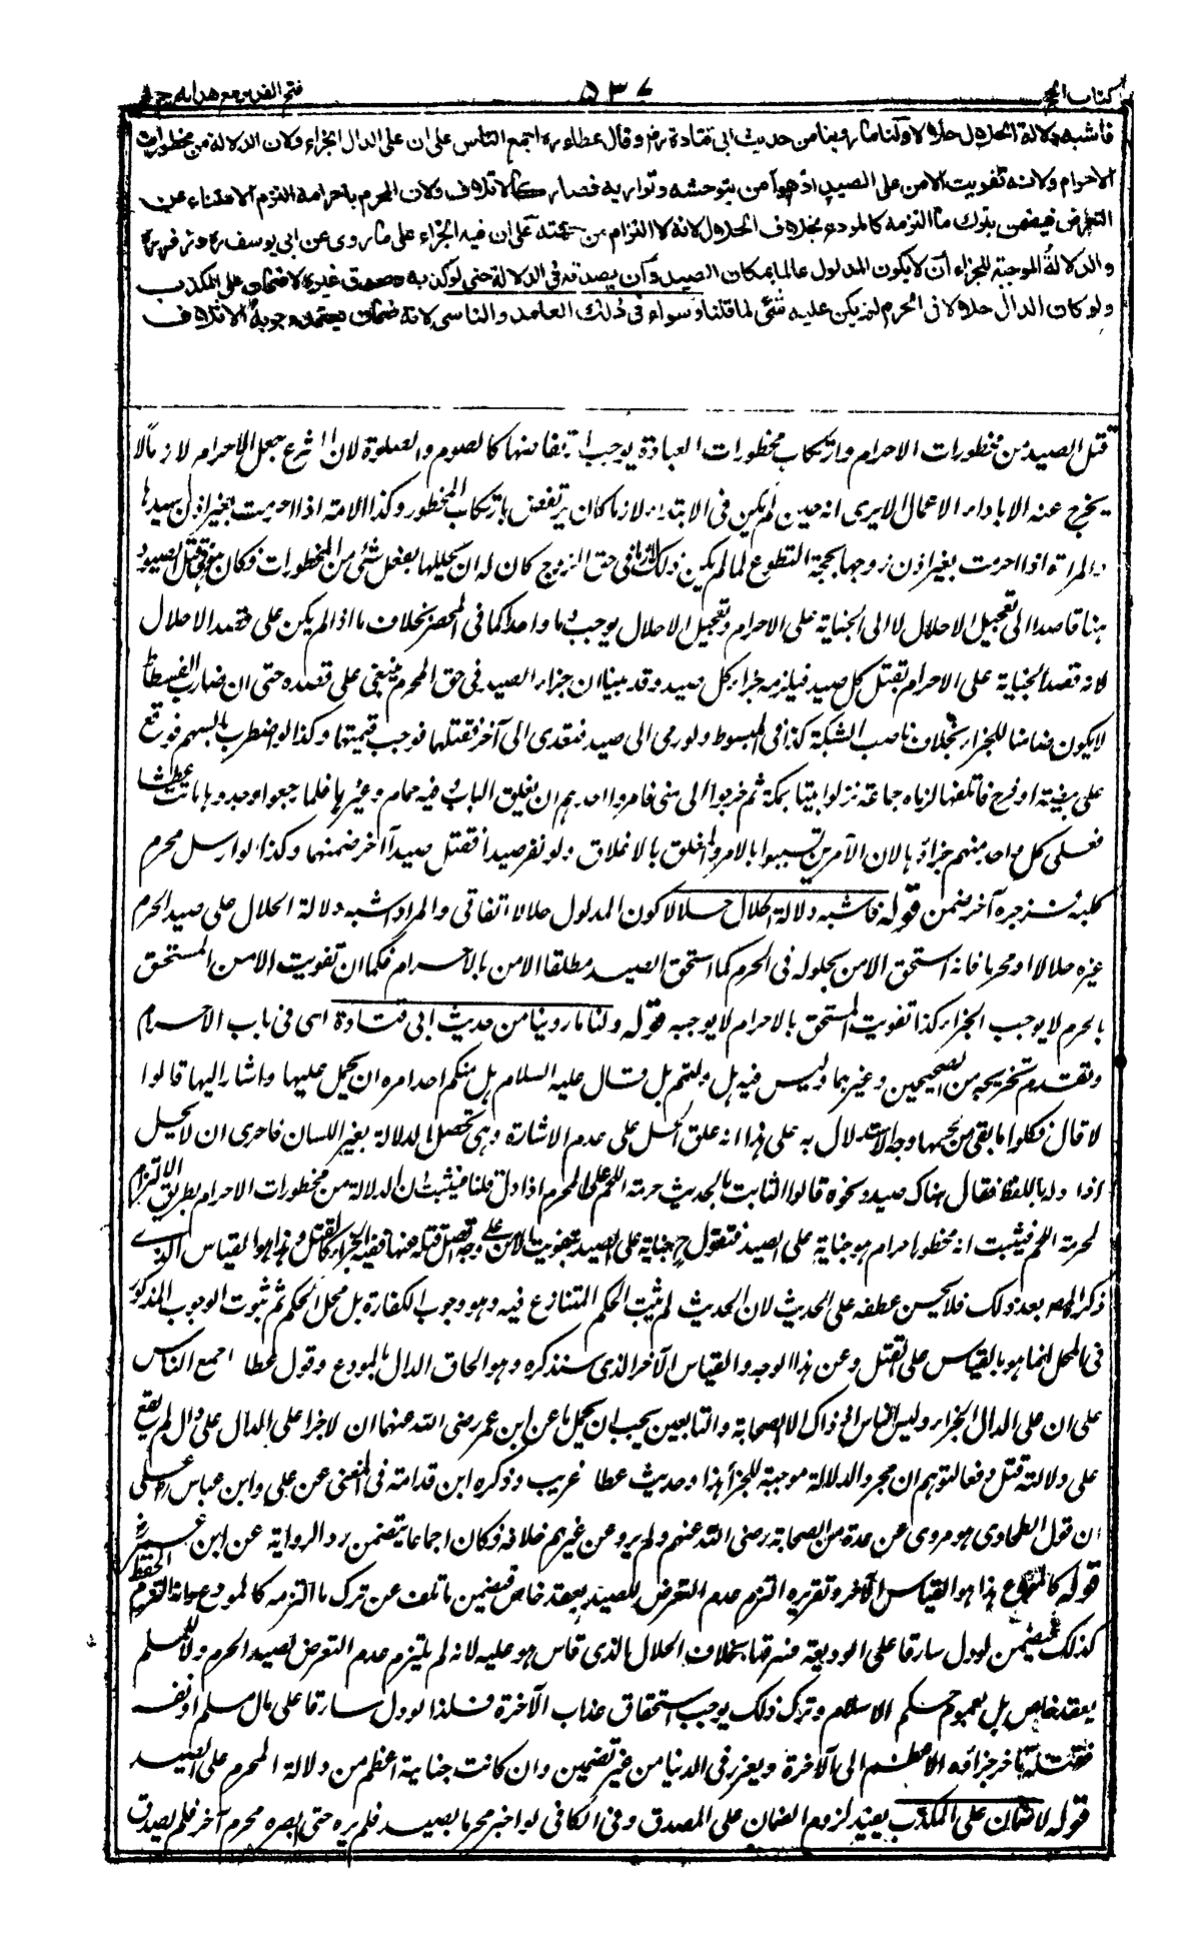 كتاب الحج
٥٣٧
فتح القدير مع هدايه ج ١
فأشبه دلالة الحلال حلالا ولنا ما روينا من حديث ابى قتادة رض وقال عطاء ره اجمع الناس على ان على الدال الجزاء ولان الدلالة من محظورات
الاحرام ولانه تفويت الامن على الصيد اذ هو آمن بتوحشه وتواريه فصار كالاتلاف ولان المحرم باحرامه التزم الامتناع عن
التعرض فيضمن بترك ما التزمه كالمودع بخلاف الحلال لانه لا التزام من جهته على ان فيه الجزاء على ما روى عن ابى يوسف ره وزفر ره
والدلالة الموجبة للجزاء ان لا يكون المدلول عالما بمكان الصيد وأن يصدقه فى الدلالة حتى لو كذبه وصدق غيره لا ضمان على المكذب
ولو كان الدال حلالا فى الحرم لم يكن عليه شئ لما قلنا وسواء فى ذلك العامد والناسى لانه ضمان يعتمد وجوبه الاتلاف
قتل الصيد من محظورات الاحرام وارتكاب محظورات العبادة يوجب ارتفاضها كالصوم والصلوة لان الشرع جعل الاحرام لازما لا
يخرج عنه الا باداء الاعمال الا يرى انه حين لم يكن فى الابتداء لازما كان يرتفض بارتكاب المحظور وكذا الامة اذا احرمت بغير اذن سيدها
والمرأة اذا احرمت بغير اذن زوجها بحجة التطوع لما لم يكن ذلك لازما فى حق الزوج كان له ان يحللها بفعل شئ من المحظورات فكان هو بقتل الصيود
هنا قاصدا الى تعجيل الاحلال لا الى الجناية على الاحرام وتعجيل الاحلال يوجب دما واحدا كما فى المحصر بخلاف ما اذا لم يكن على قصد الاحلال
لانه قصد الجناية على الاحرام بقتل كل صيد فيلزمه جزاء كل صيد وقد بينا ان جزاء الصيد فى حق المحرم ينبغى على قصده حتى ان ضارب الفسطاط
لا يكون ضامنا للجزاء بخلاف ناصب الشبكة كذا فى المبسوط ولو رمى الى صيد فتعدى الى آخر فقتلهما فوجب قيمتهما وكذا لو اضطرب بالسهم فوقع
على بيضة او فرخ فاتلفها لزماه جماعة نزلوا بيتا بمكة ثم خرجوا الى منى فامروا احدهم ان يغلق الباب وفيه حمام وغيرها فلما رجعوا وجدوها ماتت عطشا
فعلى كل واحد منهم جزاؤها لان الآمرين تسببوا بالامر والمغلق بالاغلاق ولو نفر صيدا فقتل صيدا آخر ضمنهما وكذا لو ارسل محرم
كلبه فزجره آخر ضمن قوله فاشبه دلالة الحلال حلالا كون المدلول حلالا اتفاقى والمراد اشبه دلالة الحلال على صيد الحرم
غيره حلالا او محرما فانه استحق الامن بحلوله فى الحرم كما استحق الصيد مطلقا الامن بالاحرام فكما ان تفويت الامن المستحق
بالحرم لا يوجب الجزاء كذا تفويت المستحق بالاحرام لا يوجبه قوله ولنا ما روينا من حديث ابى قتادة اى فى باب الاحرام
وتقدم تخريجه من الصحيحين وغيرهما وليس فيه هل دللتم بل قال عليه السلام هل منكم احد امره ان يحمل عليها واشار اليها قالوا
لا قال فكلوا ما بقى من لحمها وجه الاستدلال به على هذا انه علق الحل على عدم الاشارة وهى تحصل الدلالة بغير اللسان فاحرى ان لا يحل
اذا دله باللفظ فقال هناك صيد ونحوه قالوا الثابت بالحديث حرمة اللحم على المحرم اذا دل قلنا فيثبت ان الدلالة من محظورات الاحرام بطريق الالتزام
لحرمة اللحم فيثبت انه محظور احرام هو جناية على الصيد فنقول ح جناية على الصيد بتفويت الامن على وجه اتصل قتله عنها ففيه الجزاء كالقتل وهذا هو القياس الذى
ذكره المص بعد ذلك فلا يحسن عطفه على الحديث لان الحديث لم يثبت الحكم المتنازع فيه وهو وجوب الكفارة بل محل الحكم ثم ثبوت الوجوب المذكور
فى المحل انما هو بالقياس على القتل وعن هذا الوجه والقياس الآخر الذى سنذكره وهو الحاق الدال بالمودع وقول عطا اجمع الناس
على ان على الدال الجزاء وليس الناس اذ ذاك الا الصحابة والتابعين يجب ان يحمل ما عن ابن عمر رضى الله عنهما ان لا جزا على الدال على دال لم يقع
على دلالته قتل دفعا لتوهم ان مجرد الدلالة موجبة للجزأ هذا وحديث عطا غريب وذكره ابن قدامة فى المغنى عن على وابن عباس رض على
ان قول الطحاوى هو مروى عن عدة من الصحابة رضى الله عنهم ولم يرو عن غيرهم خلافه فكان اجماعا يتضمن رد الرواية عن ابن عمر رض
قوله كالمودع هذا هو القياس الآخر وتقريره التزم عدم التعرض للصيد بعقد خاص فيضمن ما تلف عن ترك ما التزمه كالمودع فانه التزم الحفظ
كذلك فيضمن لو دل سارقا على الوديعة فسرقها بخلاف الحلال الذى قاس هو عليه لانه لم يلتزم عدم التعرض لصيد الحرم ولا للمسلم
بعقد خاص بل بعموم حكم الاسلام وترك ذلك يوجب استحقاق عذاب الآخرة فلذا لو دل سارقا على مال مسلم او نفسه
فقتله تاخر جزاؤه الاعظم الى الآخرة ويعزر فى الدنيا من غير تضمين وان كانت جناية اعظم من دلالة المحرم على الصيد
قوله لا ضمان على المكذب يفيد لزوم الضمان على المصدق وفى الكافى لو اخبر محرما بصيد فلم يره حتى اخبره محرم آخر فلم يصدق